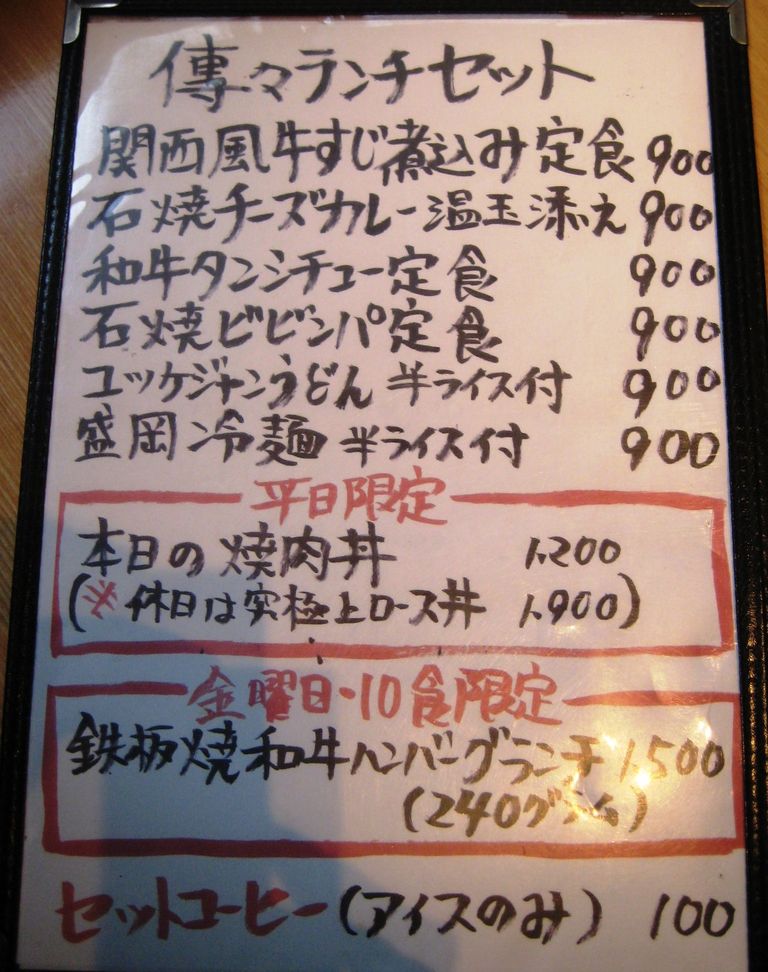 傳々ランチセット
関西風牛すじ煮込み定食 900
石焼チーズカレー温玉添え 900
和牛タンシチュー定食 900
石焼ビビンパ定食 900
ユッケジャンうどん 半ライス付 900
盛岡冷麺 半ライス付 900
平日限定
本日の焼肉丼 1,200
(※休日は究極上ロース丼 1,900)
金曜日・10食限定
鉄板焼和牛ハンバーグランチ 1,500
(240グラム)
セットコーヒー(アイスのみ) 100